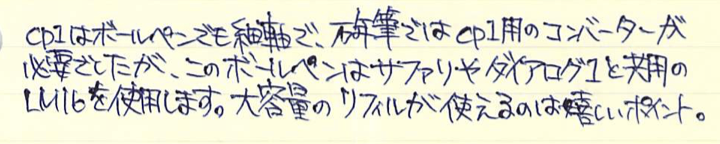 cp1はボールペンでも細軸で、万年筆ではcp1用のコンバーターが
必要でしたが、このボールペンはサファリやダイアログ1と共用の
LM16を使用します。大容量のリフィルが使えるのは嬉しいポイント。